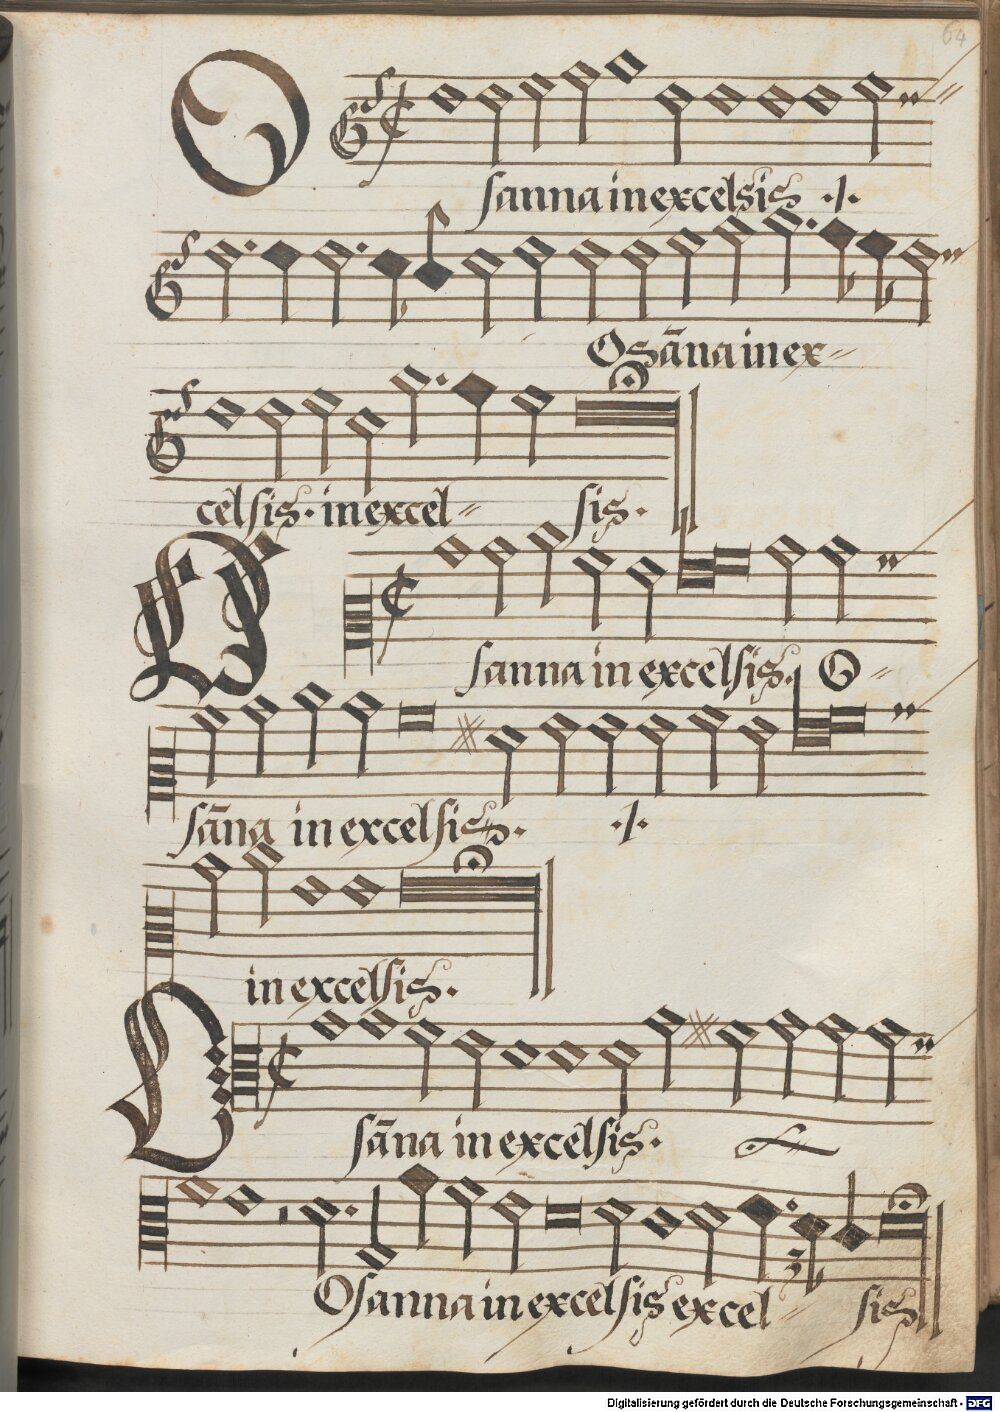 64
O
sanna in excelsis ·/·
Osāna in ex=
celsis · in excel= sis.
O
sanna in excelsis. O=
sāna in excelsis. ·/·
in excelsis.
O
sāna in excelsis.
Osanna in excelsis excel= sis
Digitalisierung gefördert durch die Deutsche Forschungsgemeinschaft - DFG